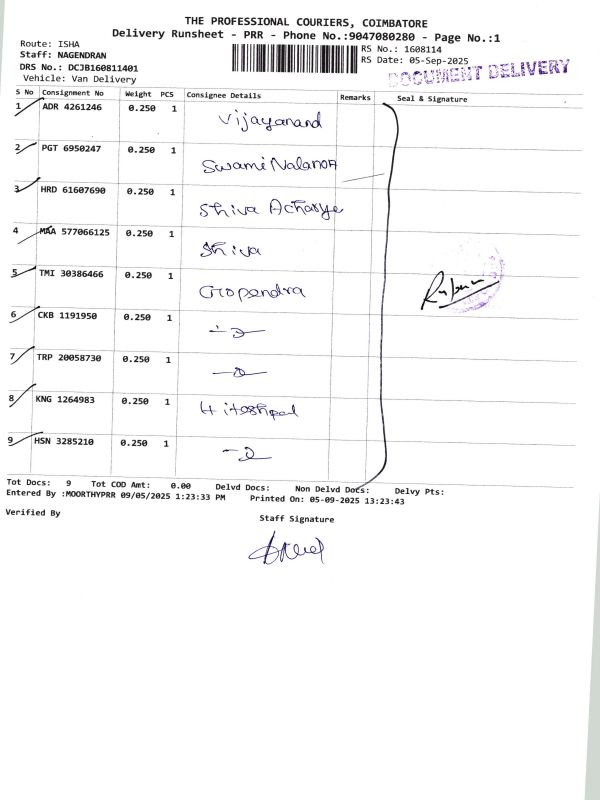 THE PROFESSIONAL COURIERS, COIMBATORE
Delivery Runsheet - PRR - Phone No.:9047080280 - Page No.:1
Route: ISHA
RS No.: 1608114
Staff: NAGENDRAN
RS Date: 05-Sep-2025
DRS No.: DCJB160811401
DOCUMENT DELIVERY
Vehicle: Van Delivery
S No Consignment No Weight PCS Consignee Details Remarks Seal & Signature
1 ADR 4261246 0.250 1 Vijayanand
2 PGT 6950247 0.250 1 Swami Nalanon
3 HRD 61607690 0.250 1 Shiva Acharye
4 MAA 577066125 0.250 1 Shiva
5 TMI 30386466 0.250 1 Gropendra
6 CKB 1191950 0.250 1
7 TRP 20058730 0.250 1
8 KNG 1264983 0.250 1 Hiteshpal
9 HSN 3285210 0.250 1
Tot Docs: 9 Tot COD Amt: 0.00 Delvd Docs: Non Delvd Docs: Delvy Pts:
Entered By :MOORTHYPRR 09/05/2025 1:23:33 PM Printed On: 05-09-2025 13:23:43
Verified By
Staff Signature